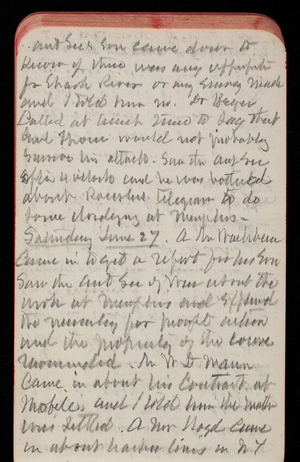 and Gen & Son came down to
know if there was any opportunity
for Shark River or any Survey Made
and I told him no. Dr Heger
called at lunch time to say that
Gen Thom would not probably
survive his attack. Saw the Act Sec
after 4 o'clock and he was bothered
about. Received telegram to do
some dredging at Memphis-
Saturday June 27. A Mr
came in to get a report for his Son
Saw the Act Sec of War about the
work at Memphis and Explained
the necessity for prompt action
and the propriety of the course
recommended. Mr W D Mann
came in about his Contract at
Mobile and I told him the matter
was settled. A Mr Lloyd came
in about harbor lines in N.Y.